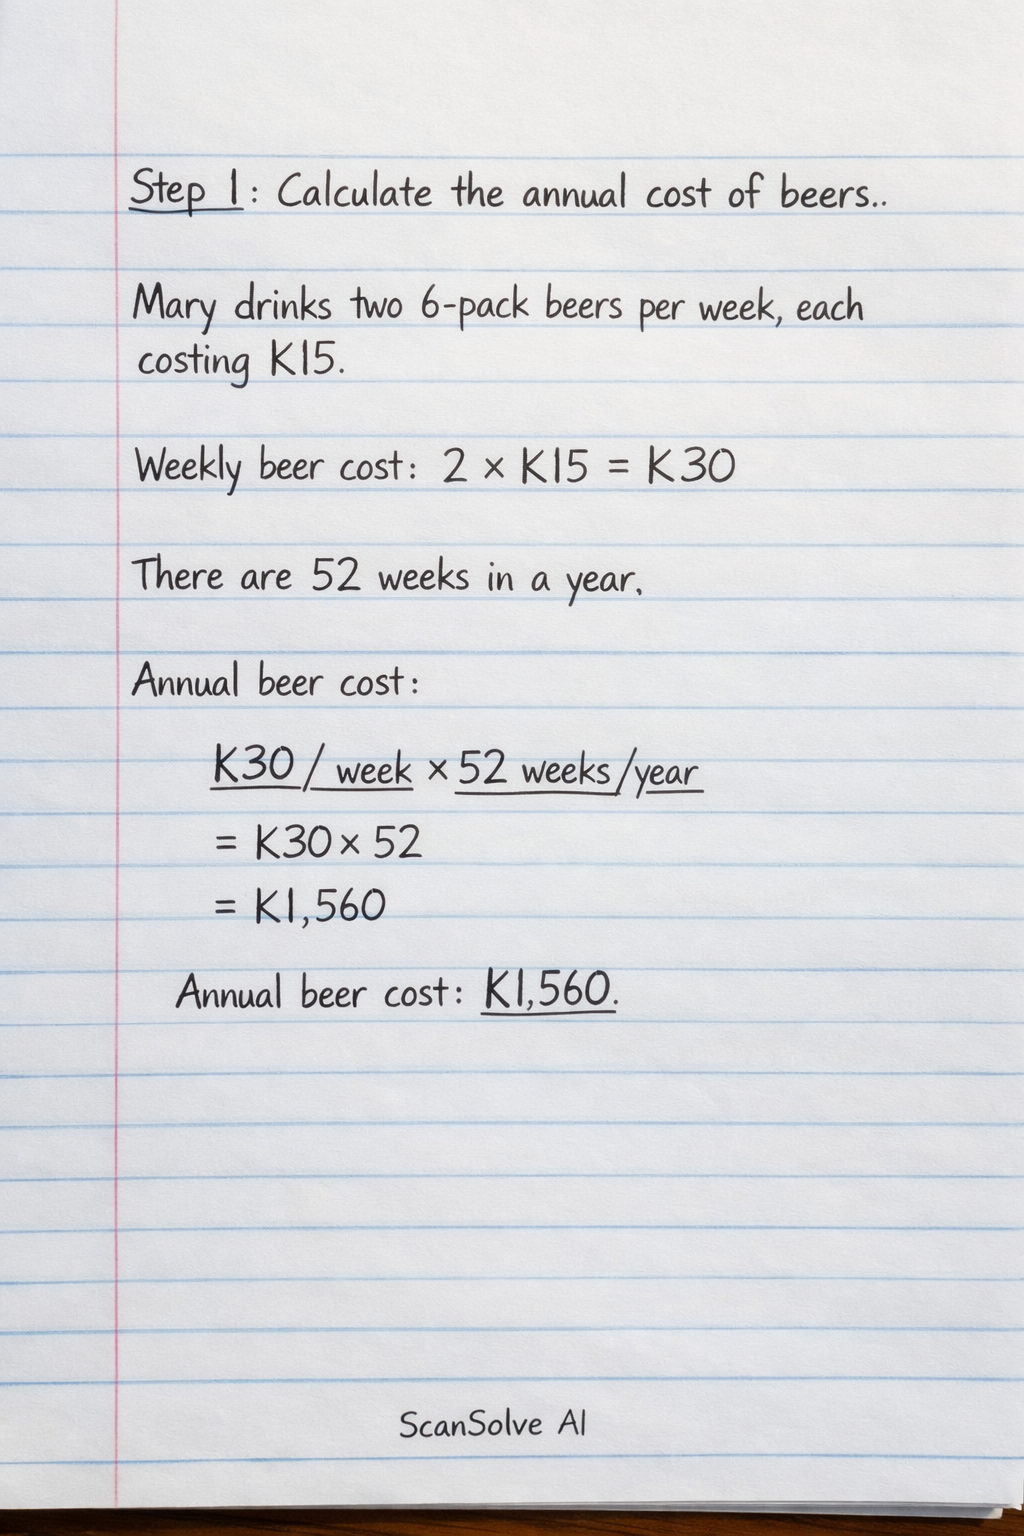 Step 1: Calculate the annual cost of beers..
Mary drinks two 6-pack beers per week, each
costing K15.
Weekly beer cost: 2 × K15 = K30
There are 52 weeks in a year.
Annual beer cost:
K30/ week × 52 weeks/year
= K30 × 52
= K1,560
Annual beer cost: K1,560.
ScanSolve AI